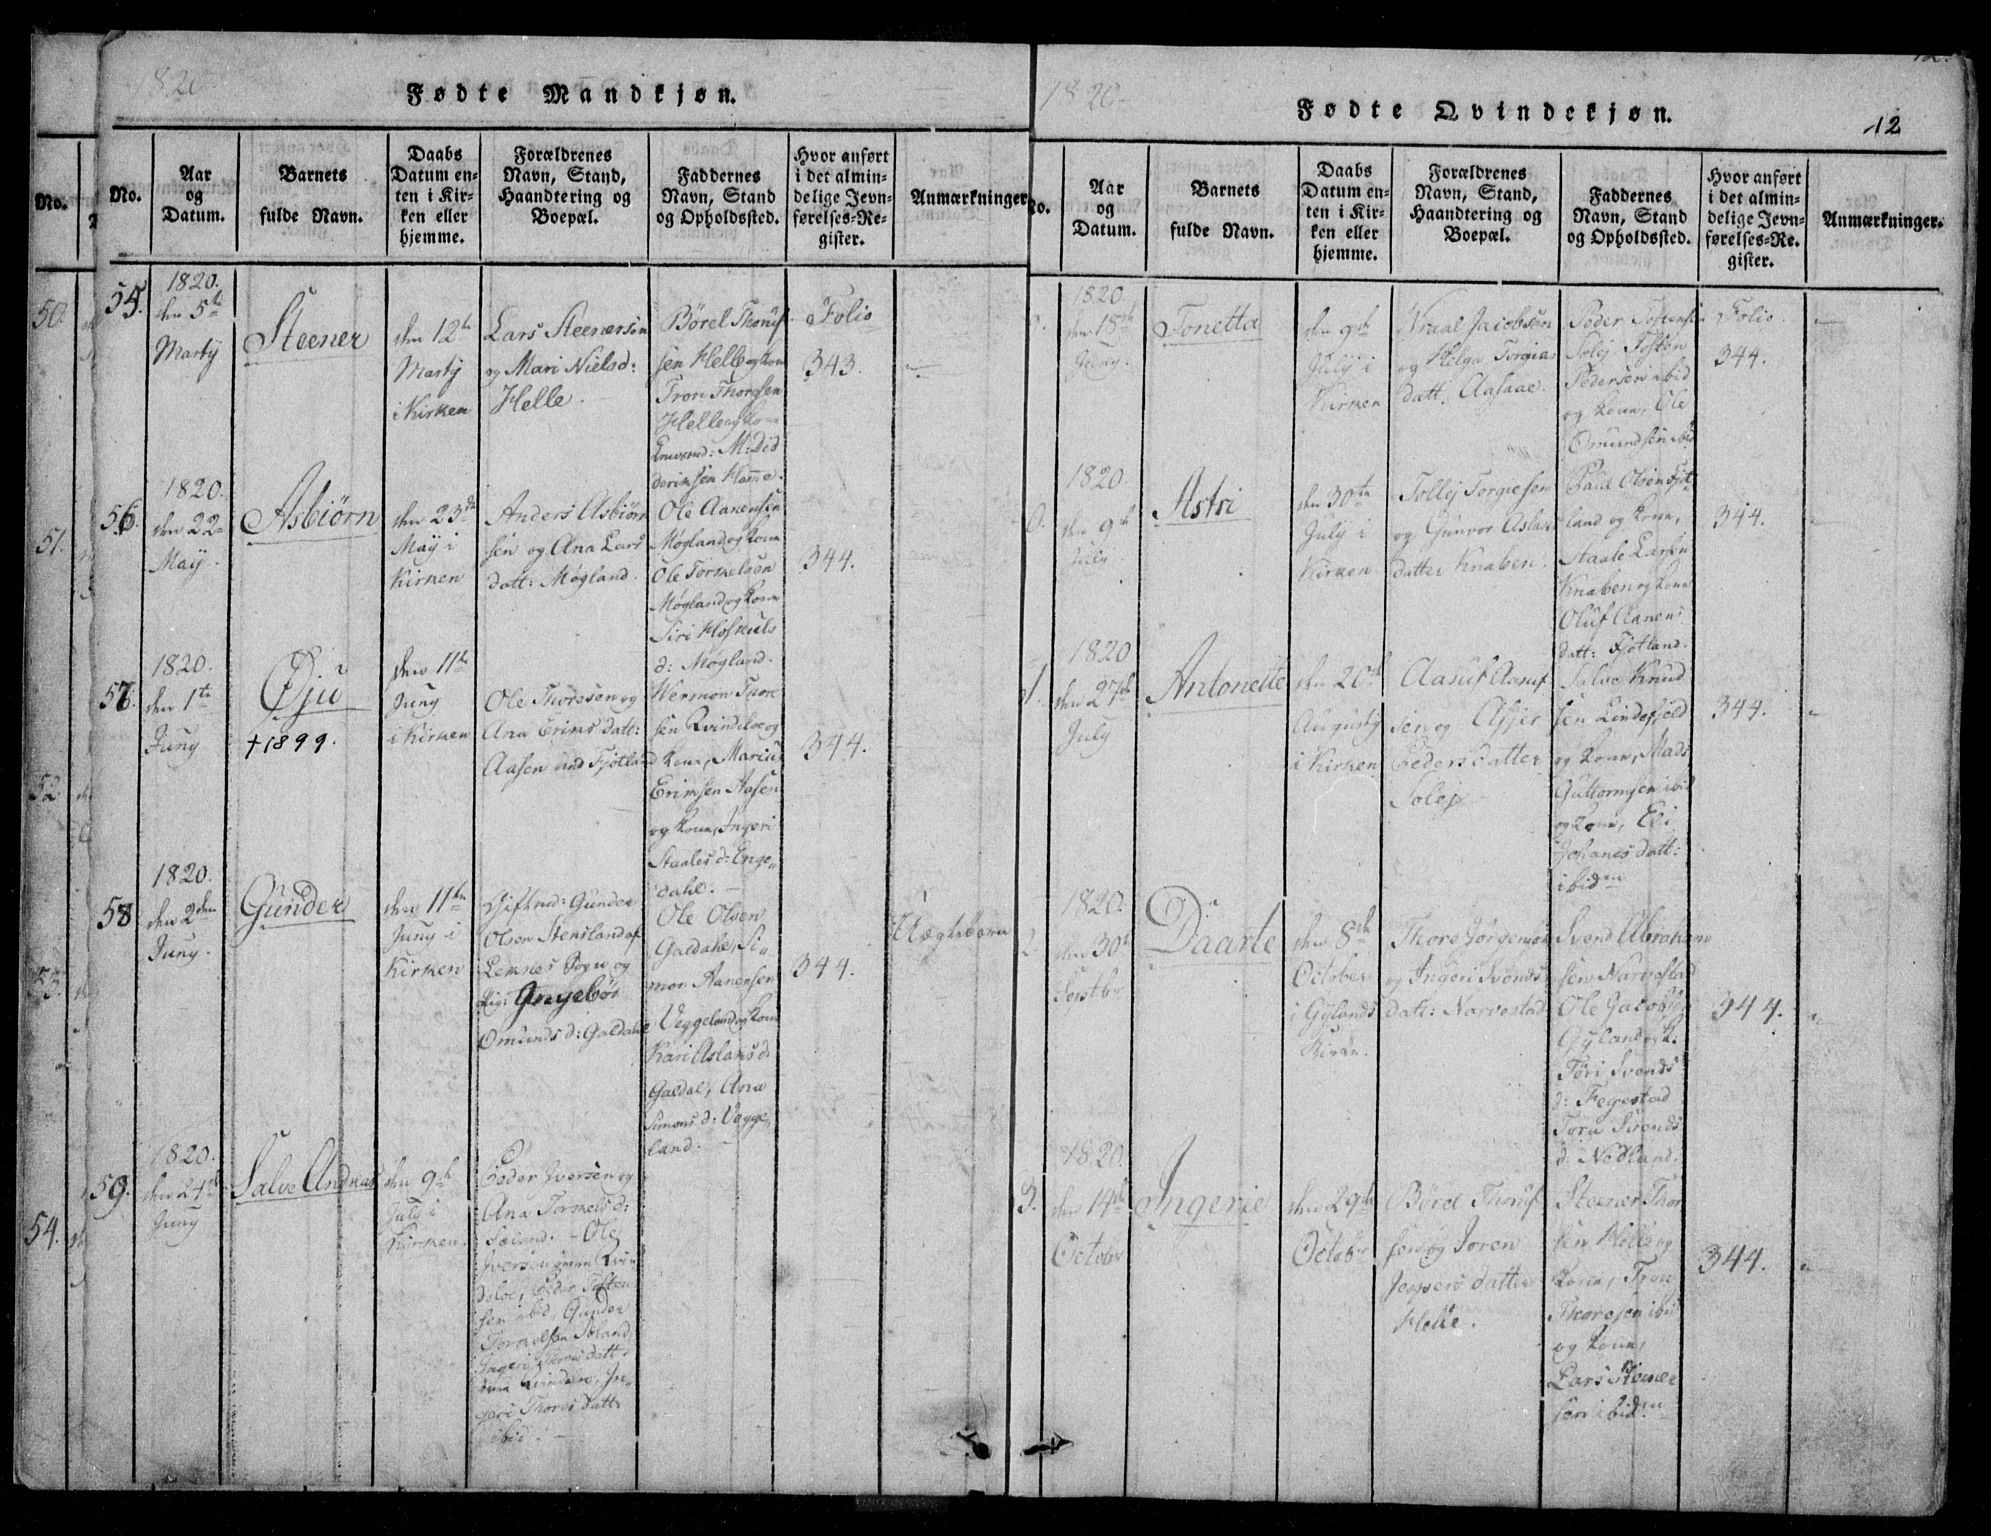 1820
Fødte Mandkjøn.
No.
Aar
og
Datum.
Barnets
fulde Navn.
Daabs
Datum en-
ten i Kir-
ken eller
hjemme.
Forældrenes
Navn, Stand,
Haandtering og
Boepæl.
Faddernes
Navn, Stand
og Opholdssted.
Hvor anført
i det almin-
delige Jevn-
førelses-Re-
gister.
Anmærkninger
No.
50.
51.
52
53.
54.
55.
1820.
den 5te
Martij
Steener
den 12te
Martij
i Kirken
Lars Steenersen
og Mari Nielsd:
Helle.
Børel Thoruf
sen Helle og Kone
Tron Thorsen
Helle og Ko-
M: Did
derichsen Hamre.
Folio
343.
56.
1820.
den 22
May.
Asbiørn
den 23de
May i
Kirken
Anders Asbiørn
sen og Ana Lars
datt: Møgland.
Ole Aanensen
Møgland og Kone
Ole Torkelsen
Møgland og Kone
Siri Hoskuls
d: Møgland.
344.
57.
1820.
den 1te
Juny
Øju
+1899.
den 11te
Juny
i Kirken
Ole Thoresen og
Ana Erichs datt:
Aasen ved Fjotland
Wermon Thor
sen Qvindloe og
Kone, Marius
Erichsen Aasen
og Kone, Ingeri
Staales d: Enge-
dahl.
344.
58
1820.
den 2den
Juny.
Gunder
den 11te
Juny i
Kirken
Gunder
Olsen Stensland af
Leknes Sogn og
Pig: Gnyebør
Omunds d: Galdahl
Ole Olsen
Galdahl, Si-
mon Aanensen
Veggeland og Kone
Kari Aslaks d:
Galdal, Ana
Simons d: Vegge-
land.
344.
Uægtebarn
59.
1820.
den 24de
Juny
Salve Andreas
den 9de
July i
Kirken.
Peder Iversen og
Ana Torkels d:
Ole
Iversen
Peder Tosten
sen ibid, Gunder
Torkelsen
Ingeri Thores datt:
In-
geri Thores datt:
ibid.
1820
Fødte Qvindekjøn.
12
No.
Aar
og
Datum.
Barnets
fulde Navn.
Daabs
Datum en-
ten i Kir-
ken eller
hjemme.
Forældrenes
Navn, Stand,
Haandtering og
Boepæl.
Faddernes
Navn, Stand
og Opholdssted.
Hvor anført
i det almin-
delige Jevn-
førelses-Re-
gister.
Anmærkninger.
1820
den 15de
Tonetta
den 9de
July i
Kirken
Wraal Jacobsen
og Helga Torgius
datt: Aasaae.
Peder Tostensen
Solej, Tosten
Pedersen ibid
og Kone, Ole
Omundsen ibid
Folio
344.
1820.
den 9de
July
Astri
den 30te
July i
Kirken
Tollej Torgiesen
og Gunvor Aslak
datter Knaben.
Paul Olsen Fjot-
land og Kone,
Staale Larsen
Knaben og Kone
Oluf Aanens
datt: Fjotland.
344.
1.
1820
den 27de
July
Antonette
den 20de
Augusty
i Kirken
Aasuf Aasuf
sen og
Peders datter
Solej
Salve Knud
sen Lindefjeld
og Kone, Mads
Guttormsen ibid
og Kone, Eli
Johanes datt:
ibidem
344.
2.
1820.
den 30te
Septbr
Daarte
den 8de
October
i Gylands
Kirke.
Thore Jørgensen
og Ingeri Svends
datt: Narvestad
Svend Abraham
sen Narvestad
Ole Jacobsen
Gyland og K.
Tøri Svends
d: Fegestad
Toru Svends
d: Nedland.
344.
3.
1820.
den 14de
Octobr
Ingerie
den 29de
Octobr
Børel Thoruf
sen og Joren
Jespers datter
Helle.
Steener Thor
sen Helle og
Kone, Tron
Thoresen ibid
og Kone,
Lars Steener
sen ibidem
344.